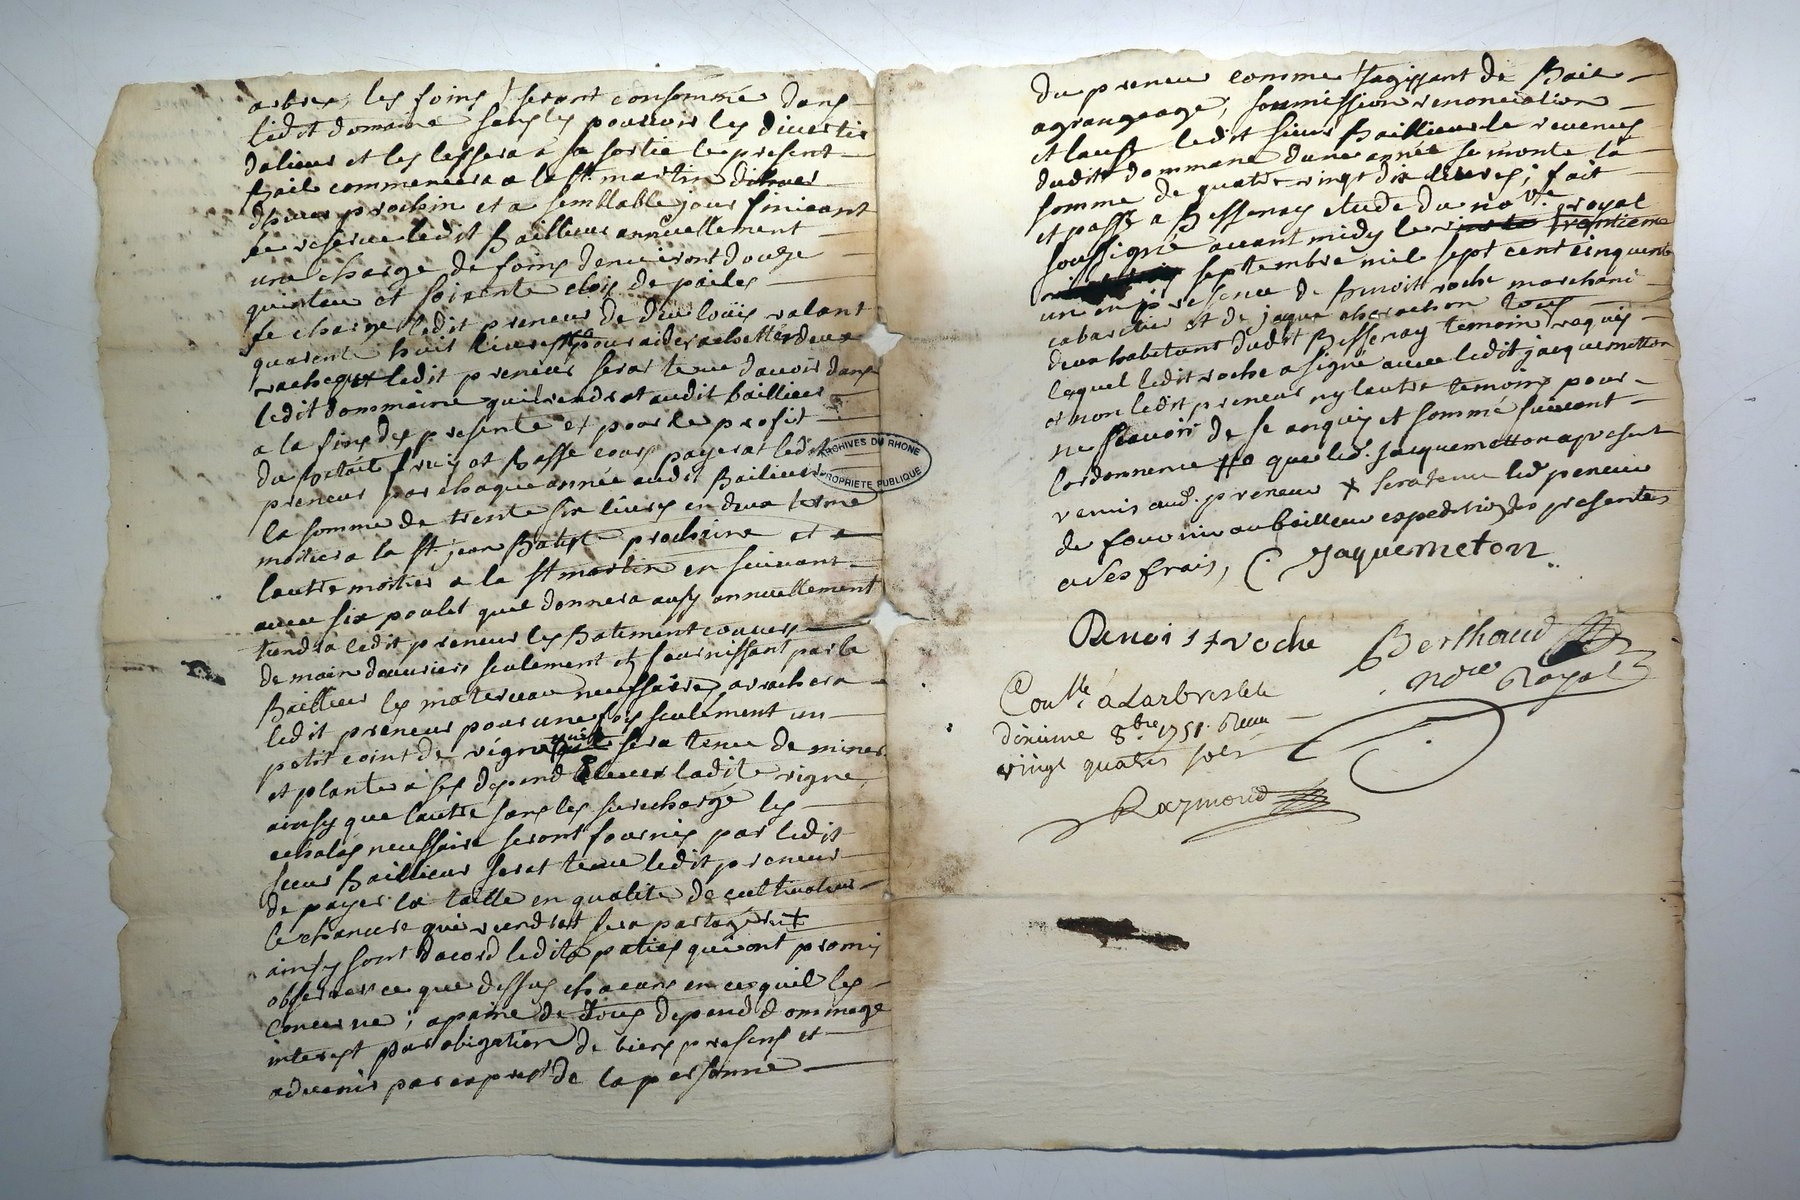 arbres, les foins seront consommé dans
ledit domaine sans les pouvoir les divertir
dalieur et les lessera a sa sortie le present
Bail commencera a la St martin dhiver
dhiver prochin et a semblable jour finicant
se reserve ledit Baillieur annuellement
une charge de foins denviront douze
quinteu et soixente clois de pailes
se charge ledit preneur de deu louis valant
quarente huit livres pour aider a chetter deux
vache ledit preneur serat tenu davoir dans
ledit dommaine quil rendrat audit baillieur
a la fins des presente et pour le profit
du betait fruis et Basse cour payerat ledit
preneur par chaque année audit Bailieur
la somme de trente six livres en deux terme
moitier a la St jean Batiste prochine et a
lautre moitier a la St martin en suivant
avec six poulet quil donnera ausy annuellement
tiendra ledit preneur les Batiment couvers
de main douvriers seulement et fournissant par le
Baillieur les materiaux neussaires, arachera
ledit preneur pour une fois seulement un
petit coint de vigne quil sera tenu de miner
et planter a ses depend elever ladite vigne
ainsy que lautre sans les surcharge les
echalas neussaire seront fournis par ledit
sieur Baillieur serat tenu ledit preneur
de payer la taille en qualite de cultivateur
le chanvre qui viendrat sera partagé
ainsy sont dacord ledits paties qui ont promis
observer ce que dessus chacuns en ce quil les
concerne; a paine de tous depend dommage
interest par obigation de biens presens et
advenir par expres de la personne
du preneur comme sagissant de Bail
a grangeage, soumission renonciation
et laust ledit sieur Baillieur le revenus
dudits dommane dune année se monte la
somme de quatre vingt dix livres; fait
et passé a Bessenay etude du nore royal
soussigne avant midy le trentieme
septembre mil sept cent cinquente
un en presence de Benoit roche marchand
cabaretier et de jaque charachon tous
deux habitant dudit Bessenay temoin requis
lequel ledit roche a signé avec ledit jacquemetton
et non ledit preneur ny lautre temoins pour
ne scavoir de se enquis et sommé suivant
lordonnence que led. Jacquemetton a present
remis aud. preneur x sera tenu led preneur
de fournir au bailleur expedition des presentes
a ses frais, C. Jaquemeton
Benoist roche Berthaud
nore Royal
Conllé a Larbresle le
dixieme 8bre 1751. Reçu
vingt quatre sols
Raymond
ARCHIVES DU RHONE
PROPRIETE PUBLIQUE